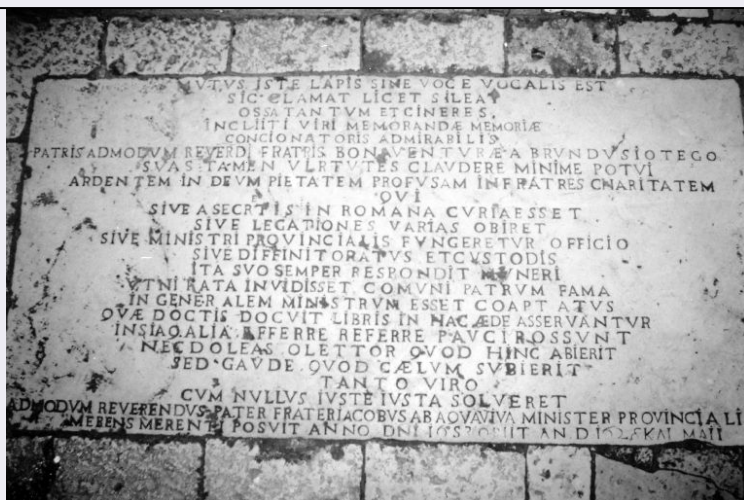 MUTUS ISTE LAPIS SINE VOCE VOCALIS EST
SIC CLAMAT LICET SILEAT
OSSA TANTUM ET CINERES,
INCLITI VIRI MEMORANDÆ MEMORIÆ
CONCIONATORIS ADMIRABILIS
PATRIS ADMODUM REVERDI FRATRIS BONAVENTURÆ A BRUNDUSIO TEGO
SUAS TAMEN VIRTUTES CLAUDERE MINIME POTUI
ARDENTEM IN DEUM PIETATEM PROFUSAM IN FRATRES CHARITATEM
QUI
SIVE A SECRTIS IN ROMANA CURIA ESSET
SIVE LEGATIONES VARIAS OBIRET
SIVE MINISTRI PROVINCIALIS FUNGERETUR OFFICIO
SIVE DIFFINITORATUS ET CUSTODIS
ITA SUO SEMPER RESPONDIT MUNERI
UT NI RATA INVIDISSET COMUNI PATRUM FAMA
IN GENERALEM MINISTRUM ESSET COAPTATUS
QUÆ DOCTIS DOCUIT LIBRIS IN HAC ÆDE ASSERVANTUR
ALIA EFFERRE REFERRE PAUCI ROSSUNT
NEC DOLEAS O LETTOR QUOD HINC ABIERIT
SED GAUDE QUOD CÆLUM SUBIERIT
TANTO VIRO
CUM NULLUS IUSTE IUSTA SOLVERET
ADMODUM REVERENDUS PATER FRATER IACOBUS AB AQUAVIVA MINISTER PROVINCIALI
MERENS MERENTI POSUIT ANNO DNI OBIIT AN D KAL MAII